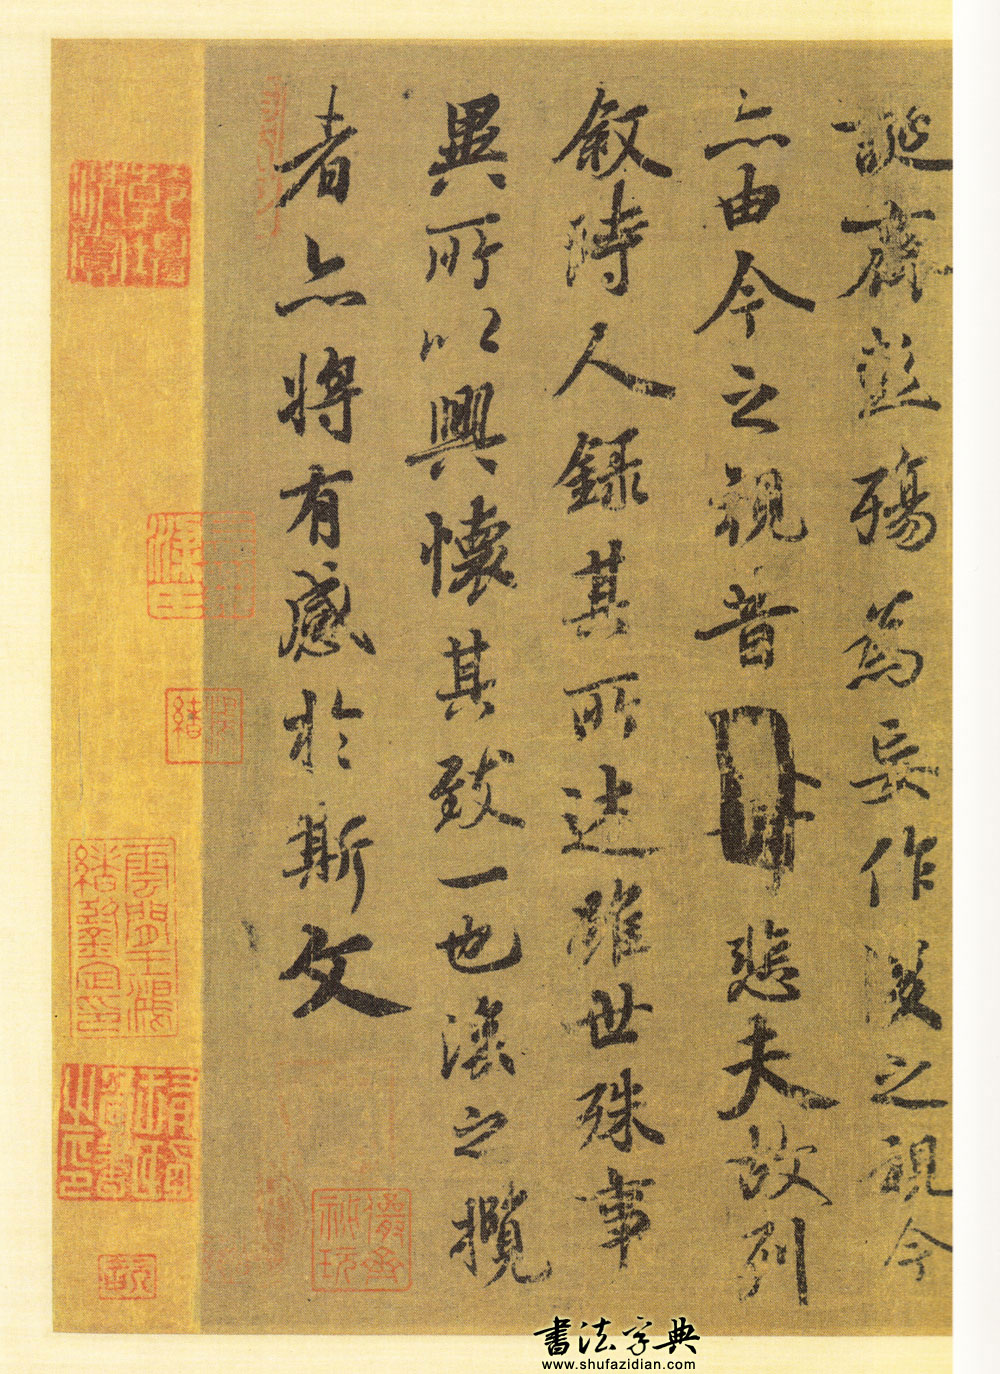 誕齊彭殤為妄作後之視今
亦由今之視昔悲夫故列
叙時人錄其所述雖世殊事
異所以興懷其致一也後之攬
者亦將有感於斯文
儼齋秘玩
雲間王鴻緒鑒定印
書法字典
www.shufazidian.com